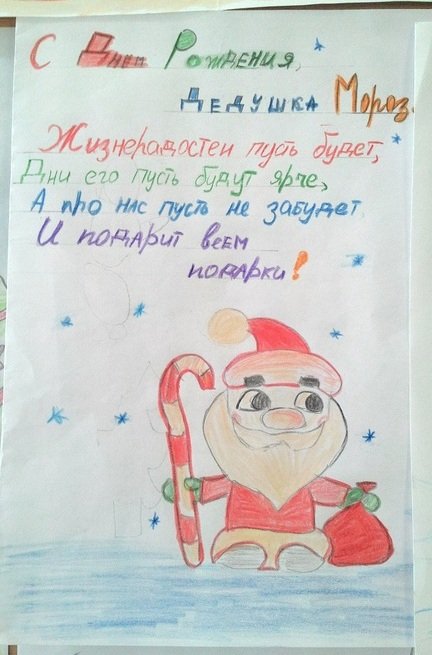 С Днем Рождения,
Дедушка Мороз.
Жизнерадостен пусть будет,
Дни его пусть будут ярче,
А про нас пусть не забудет
И подарит всем
подарки!